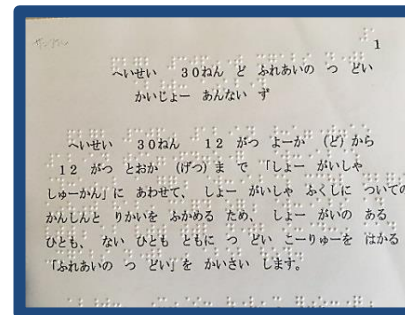 1
へいせい　30ねん　ど　ふれあいの　つ　どい
かいじょー　あんない　ず
へいせい　30ねん　12　がつ　よーか　(ど)　から
12　がつ　とおか　(げつ)　ま　で　「しょー　がいしゃ
しゅーかん」に　あわせて、　しょー　がいしゃ　ふくしに　ついての
かんしんと　りかいを　ふかめる　ため、　しょー　がいの　ある
ひとも、　ない　ひとも　ともに　つ　どい　こーりゅーを　はかる
「ふれあいの　つ　どい」を　かいさい　します。